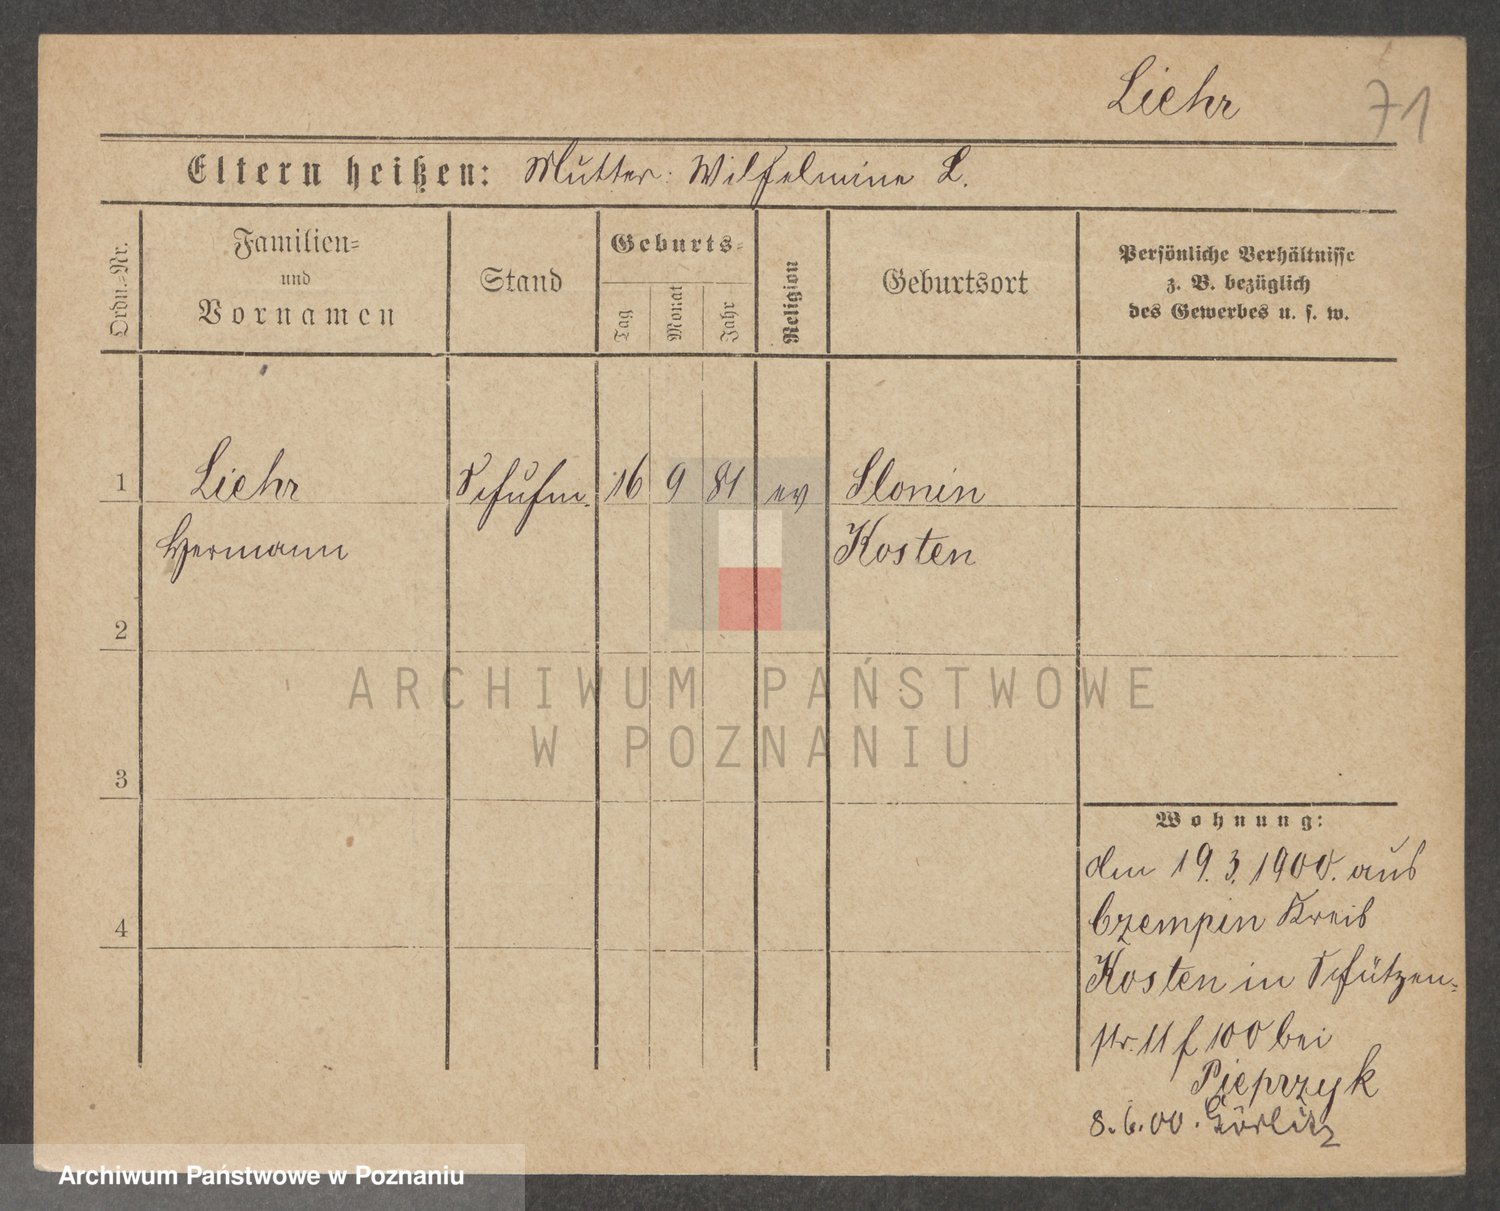 Liehr
71
Eltern heißen: Mutter: Wilhelmine L.
Ordn.-Nr.
Familien-
und
Vornamen
Stand
Geburts-
Tag
Monat
Jahr
Religion
Geburtsort
Persönliche Verhältnisse
z. B. bezüglich
des Gewerbes u. s. w.
1 Liehr Schuhm. 16 9 81 ev Slonin
Hermann Kosten
2
ARCHIWUM PAŃSTWOWE
W POZNANIU
3
Wohnung:
den 19. 3. 1900. aus
4
Czempin Kreis
Kosten in Schützen-
str. 11 f 100 bei
Pieprzyk
8. 6. 00. Görlitz
Archiwum Państwowe w Poznaniu